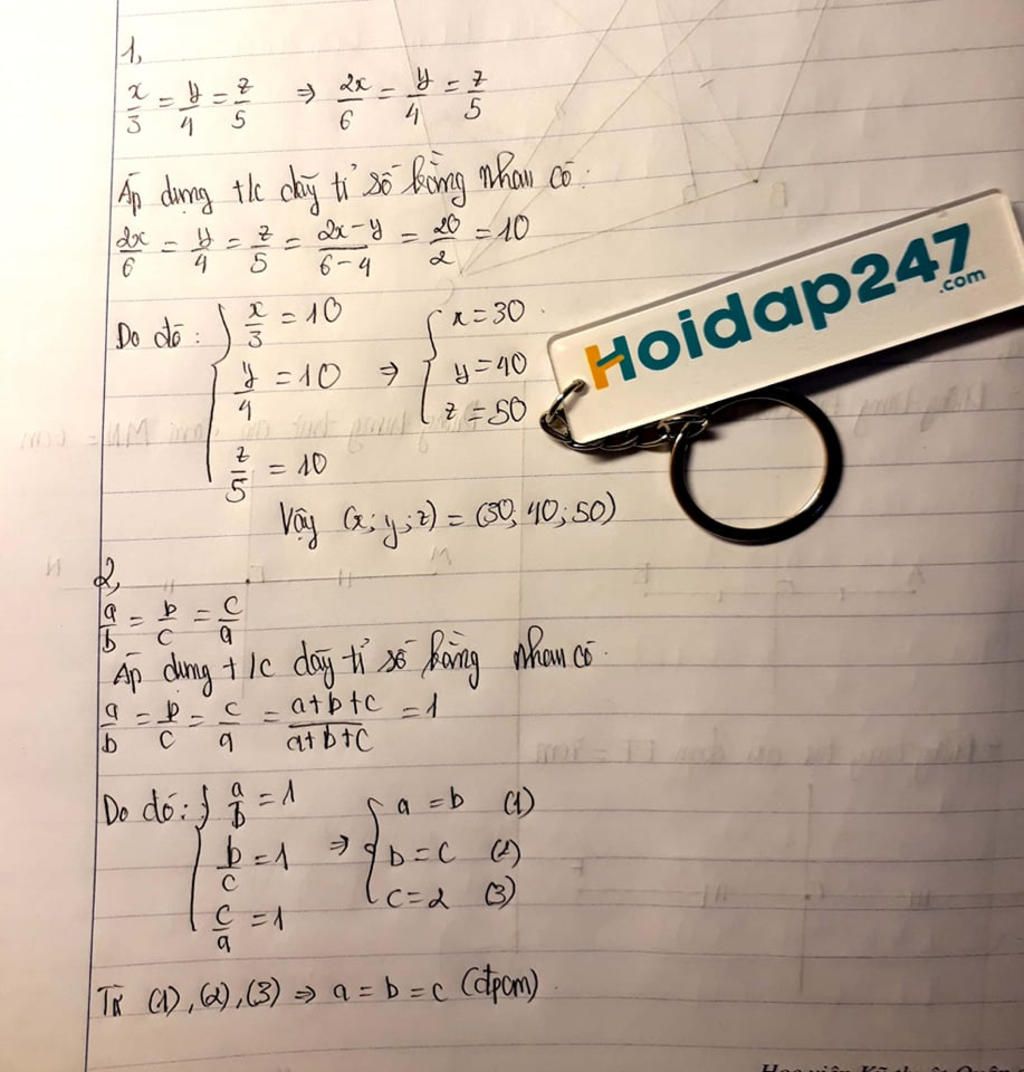 1,
x/3 = y/4 = z/5 ⇒ 2x/6 = y/4 = z/5
Áp dụng t/c dãy tỉ số bằng nhau có:
2x/6 = y/4 = z/5 = 2x-y/6-4 = 20/2 = 10
Do đó: { x/3 = 10
y/4 = 10
z/5 = 10
⇒ { x = 30
y = 40
z = 50
Vậy (x; y; z) = (30; 40; 50)
Hoidap247
.com
2,
a/b = b/c = c/a
Áp dụng t/c dãy tỉ số bằng nhau có:
a/b = b/c = c/a = a+b+c/a+b+c = 1
Do đó: { a/b = 1
b/c = 1
c/a = 1
⇒ { a = b (1)
b = c (2)
c = 2 (3)
Từ (1), (2), (3) ⇒ a = b = c (đpcm)